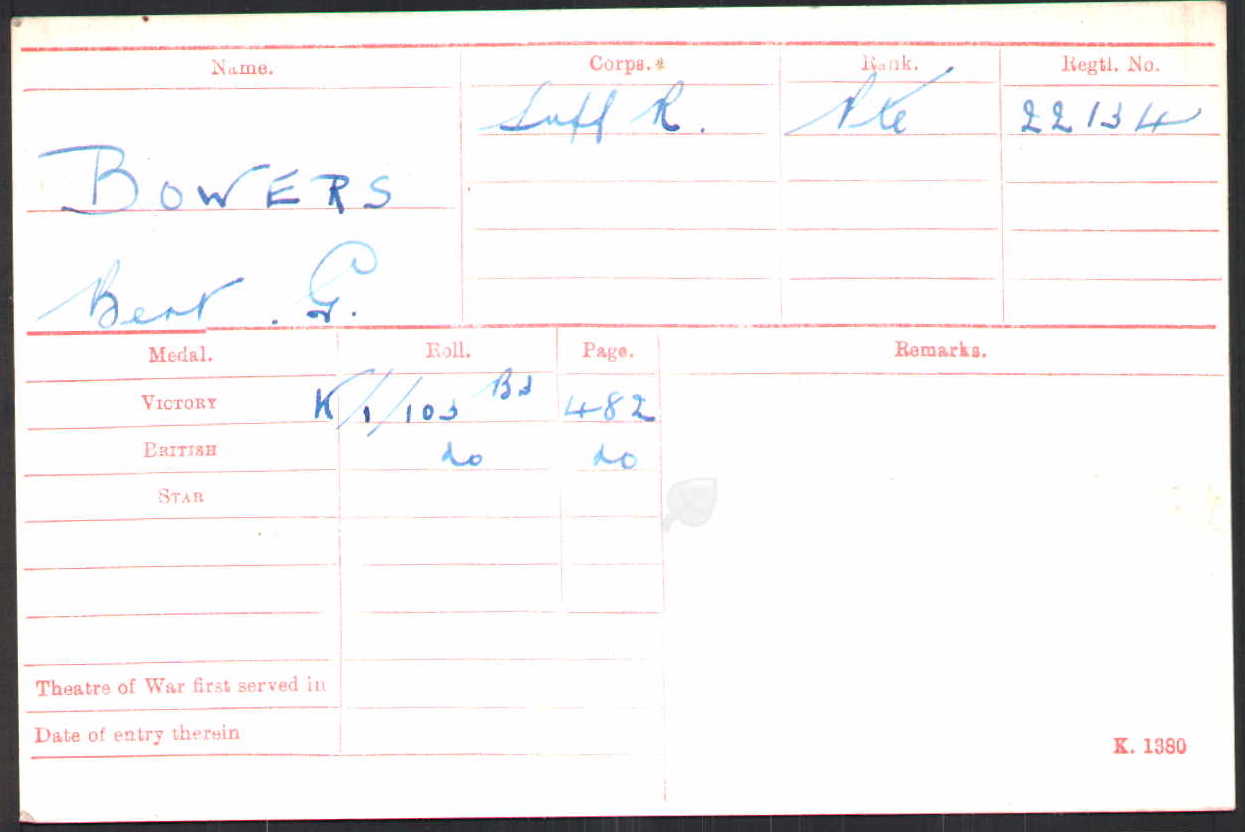 Name. Corps.* Rank. Regtl. No.
Suff R. Pte 22134
BOWERS
Bert. G.
Medal. Roll. Page. Remarks.
VICTORY K/1/103 B3 482
BRITISH do do
STAR
Theatre of War first served in
Date of entry therein
K. 1380